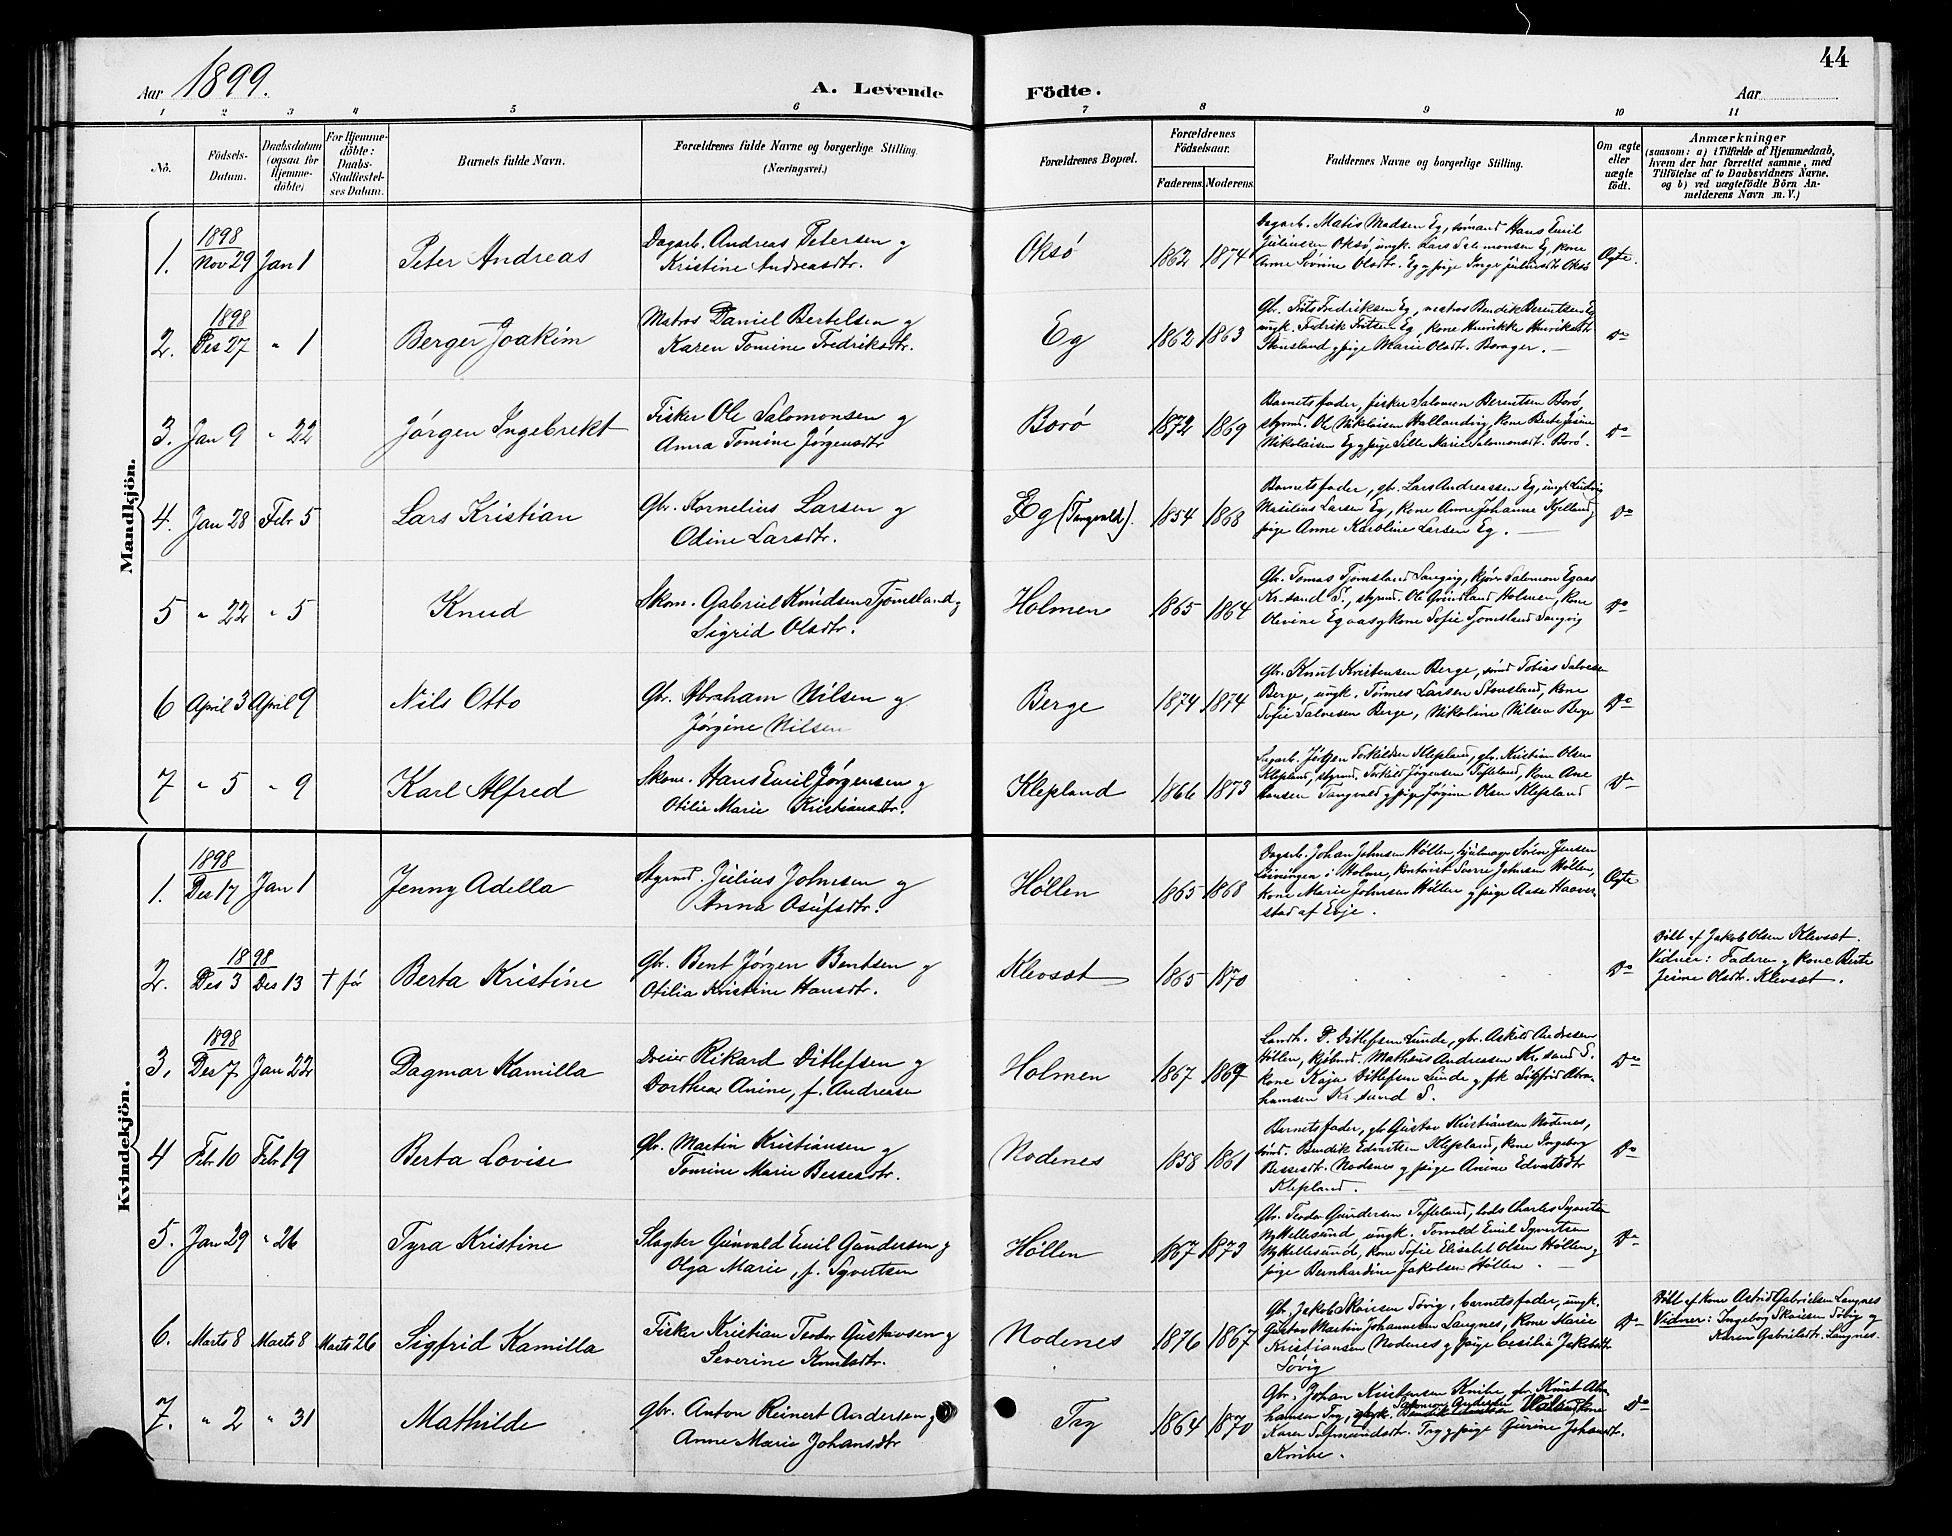 44
Aar 1899.
A. Levende Födte.
Aar
1 2 3 4 5 6 7 8 9 10 11
No.
Födsels-Datum.
Daabsdatum (ogsaa for Hjemmedöbte)
For Hjemmedöbte: Daabs-Stadfæstelses Datum.
Barnets fulde Navn.
Forældrenes fulde Navne og borgerlige Stilling. (Næringsvei.)
Forældrenes Bopæl.
Forældrenes Födselsaar.
Faderens. Moderens.
Faddernes Navne og borgerlige Stilling.
Om ægte eller uægte födt.
Anmærkninger
(saasom: a) i Tilfælde af Hjemmedaab,
hvem der har forrettet samme, med
Tilföielse af to Daabsvidners Navne,
og b) ved uægtefödte Börn Anmelderens Navn m. V.)
Mandkjön.
1. 1898 Nov 29 Jan 1 Peter Andreas
Dagarb. Andreas Petersen og
Kristine Andreasdtr.
Oksø 1862 1874
Dagarb. Matis Madsen Eg, sømand Hans Emil
Juliussen Oksø, ungk. Lars Salomonsen Eg, kone
Anne Sørine Olsdtr. Eg og pige Inge Juliusdtr Oksø
Ægte.
2. 1898 Des 27 " 1 Berger Joakim
Matros Daniel Bertelsen og
Karen Tomine Fredriksdtr.
Eg 1862 1863
Gbr. Frits Fredriksen Eg, matros Bendik Berentsen Eg
ungk. Fredrik Fritsen Eg, kone Henrikke Henriksdtr
Stensland og pige Marie Olsdtr. Borøger. —
Do
3. Jan 9 " 22 Jørgen Ingebrekt
Fisker Ole Salomonsen og
Anna Tomine Jørgensdtr
Borø 1872 1869
Barnets fader, fisker Salomon Berntsen Borø
styrmd. Ole Nikolaisen Hallandvig, kone Berte Josine
Nikolaisen Eg og pige Sille Marie Salomonsdt. Borø.
Do
4. Jan 28 Febr 5 Lars Kristian
Gbr. Kornelius Larsen og
Odine Larsdtr.
Eg (Tangvalds). 1854 1868
Barnets fader, gbr. Lars Andreassen Eg, ungk Ludvig
Masilius Larsen Eg, kone Anne Johanne Kjelland,
pige Anne Karoline Larsen Eg. —
Do
5 " 22 " 5 Knud
Skom. Gabriel Knudsen Tjomsland og
Sigrid Olsdtr.
Holmen 1865 1864
Gbr. Tomas Tjomsland Sangvig, kjører Salomon Egaas
Kr.sand S., styrmd. Ole Grindland Holmen, kone
Olevine Egaas og kone Sofie Tjomsland Sangvig
Do
6 April 3 April 9 Nils Otto
Gbr. Abraham Nilsen og
Jørgine Nilsen
Berge 1874 1874
Gbr. Knut Kristensen Berge, sømd Tobias Salvesen
Berge, ungk. Tønnes Larsen Stensland, kone
Sofie Salvesen Berge, Nikoline Nilsen Berge
Do
7 " 5 " 9 Karl Alfred
Skom. Hans Emil Jørgensen og
Otilie Marie Kristiansdtr.
Klepland 1866 1873
Dagarb. Jørgen Torkildsen Klepland, gbr. Kristian Olsen
Klepland, styrmd. Torkild Jørgensen Tofteland, kone Ane
Hansen Tangvald og pige Jørgine Olsen Klepland
Do
Kvindekjön.
1. 1898 Des 17 Jan 1 Jenny Adella
Styrmd. Julius Johnsen og
Anna Osufsdtr.
Høllen 1865 1868
Dagarb. Johan Johnsen Høllen, hjulmager Søren Jensen
i Holme, kontorist Sverre Johnsen Høllen,
kone Marie Johnsen Høllen og pige Aase Haaverstad
af Evje.
Ægte
2. 1898 Des 3 Des 13 † før Berta Kristine
Gbr. Bent Jørgen Bentsen og
Otilia Kristine Hansdtr.
Klevsæt 1865 1870
Do
Døbt af Jakob Olsen Klevsæt.
Vidner: Faderen og kone Berte
Jesine Olsdtr. Klevsæt.
3. 1898 Des 7 Jan 22 Dagmar Kamilla
Dreier Rikard Ditlefsen og
Dorthea Anine, f. Andreasen
Holmen 1867 1869
Landh. D. Ditlefsen Lunde, gbr. Askild Andresen
Høllen, kjøbmd. Mathius Andreassen Kr.sand S.
kone Kaja Ditlefsen Lunde og frk Sigfrid Abrahamsen
Kr.sand S.
Do
4 Febr 10 Febr 19 Berta Lovise
Gbr. Martin Kristiansen og
Tomine Marie Bessesdtr.
Nodenes 1858 1861
Barnets fader, gbr Gustav Kristiansen Nodenes,
sømd. Bendik Edvartsen Klepland, kone Ingeborg
Bessesdtr. Nodenes og pige Anine Edvartsdtr
Klepland. —
Do
5. Jan 29 " 26 Tyra Kristine
Slagter Gunvald Emil Gundersen og
Olga Marie, f. Syvertsen
Høllen 1867 1873
Gbr. Teodor Gundersen Tofteland, lods Charles Syvertsen
Ny Hellesund, ungk. Torvald Emil Syvertsen
Ny Hellesund, kone Sofie Elisabet Olsen Høllen og
pige Bernhardine Jakobsen Høllen. —
Do
6. Marts 8 Marts 8 Marts 26 Sigfrid Kamilla
Fisker Kristian Teodor Gustavsen og
Severine Knutsdtr.
Nodenes 1876 1867
Gbr. Jakob Skaiesen Søvig, barnets fader, ungk.
Gustav Martin Johannesen Langnes, kone Marie
Kristiansen Nodenes og pige Cecilia Jakobsdtr
Søvig
Do
Døbt af kone Astrid Gabrielsen Langnes
Vidner: Ingeborg Skaiesen Søvig og
Karen Gabrielsdtr. Langnes.
7. " 2 " 31 Mathilde
Gbr. Anton Reinert Andersen og
Anne Marie Johansdtr
Try 1864 1870
Gbr. Johan Kristensen Knibe, gbr. Knut Abrahamsen
Try, ungk. Salomon Andersen Valand, kone
Karen Salmundsdtr. Try og pige Gurine Johansdtr.
Knibe.
Do